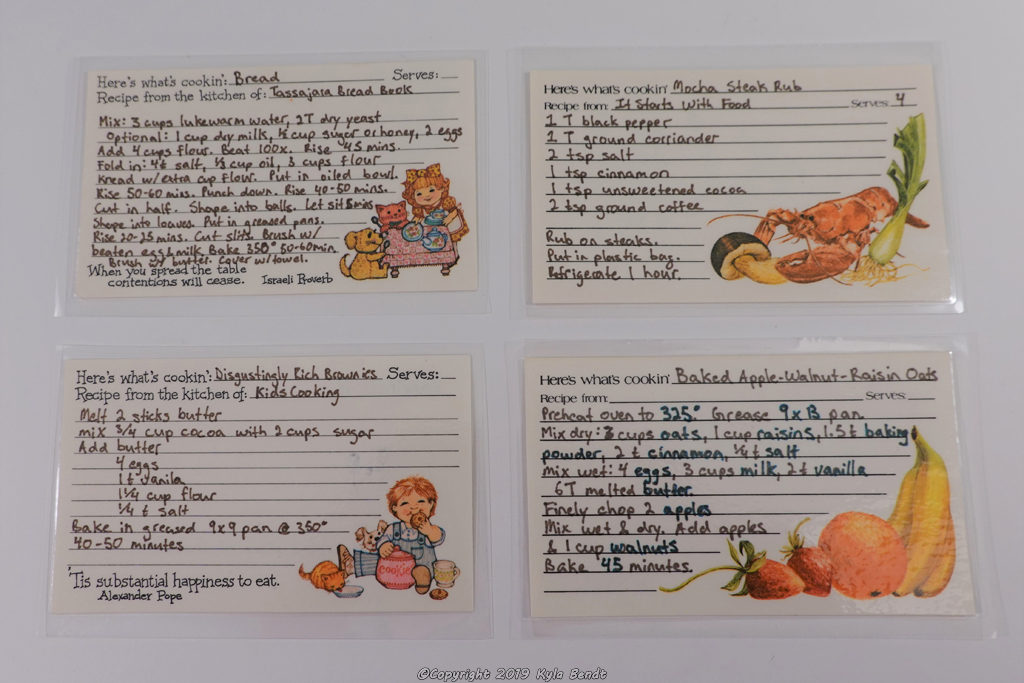 Here's what's cookin': Bread Serves:
Recipe from the kitchen of: Tassajara Bread Book
Mix: 3 cups lukewarm water, 2T dry yeast
Optional: 1 cup dry milk, ½ cup sugar or honey, 2 eggs
Add 4 cups flour. Beat 100x. Rise 45 mins.
Fold in: 4t salt, ⅓ cup oil, 3 cups flour
Knead w/extra cup flour. Put in oiled bowl.
Rise 50-60 mins. Punch down. Rise 40-50 mins.
Cut in half. Shape into balls. Let sit 5 mins
Shape into loaves. Put in greased pans.
Rise 20-25 mins. Cut slits. Brush w/
beaten egg & milk. Bake 350° 50-60 min.
Brush w/ butter. Cover w/towel.
When you spread the table
contentions will cease. Israeli Proverb
Here's what's cookin' Mocha Steak Rub
Recipe from: It Starts With Food Serves: 4
1 T black pepper
1 T ground corriander
2 tsp salt
1 tsp cinnamon
1 tsp unsweetened cocoa
2 tsp ground coffee
Rub on steaks.
Put in plastic bag.
Refrigerate 1 hour.
Here's what's cookin': Disgustingly Rich Brownies Serves:
Recipe from the kitchen of: Kids Cooking
Melt 2 sticks butter
mix 3/4 cup cocoa with 2 cups sugar
Add butter
4 eggs
1 t vanila
1 1/4 cup flour
1/4 t salt
Bake in greased 9x9 pan @ 350°
40-50 minutes
'Tis substantial happiness to eat.
Alexander Pope
COOKIE
Here's what's cookin' Baked Apple-Walnut-Raisin Oats
Recipe from: Serves:
Preheat oven to 325.° Grease 9x13 pan
Mix dry: 3 cups oats, 1 cup raisins, 1.5 t baking
powder, 2 t cinnamon, ¼ t salt
Mix wet: 4 eggs, 3 cups milk, 2 t vanilla
6T melted butter.
Finely chop 2 apples
Mix wet & dry. Add apples
& 1 cup walnuts
Bake 45 minutes.
©Copyright 2019 Kyla Bendt